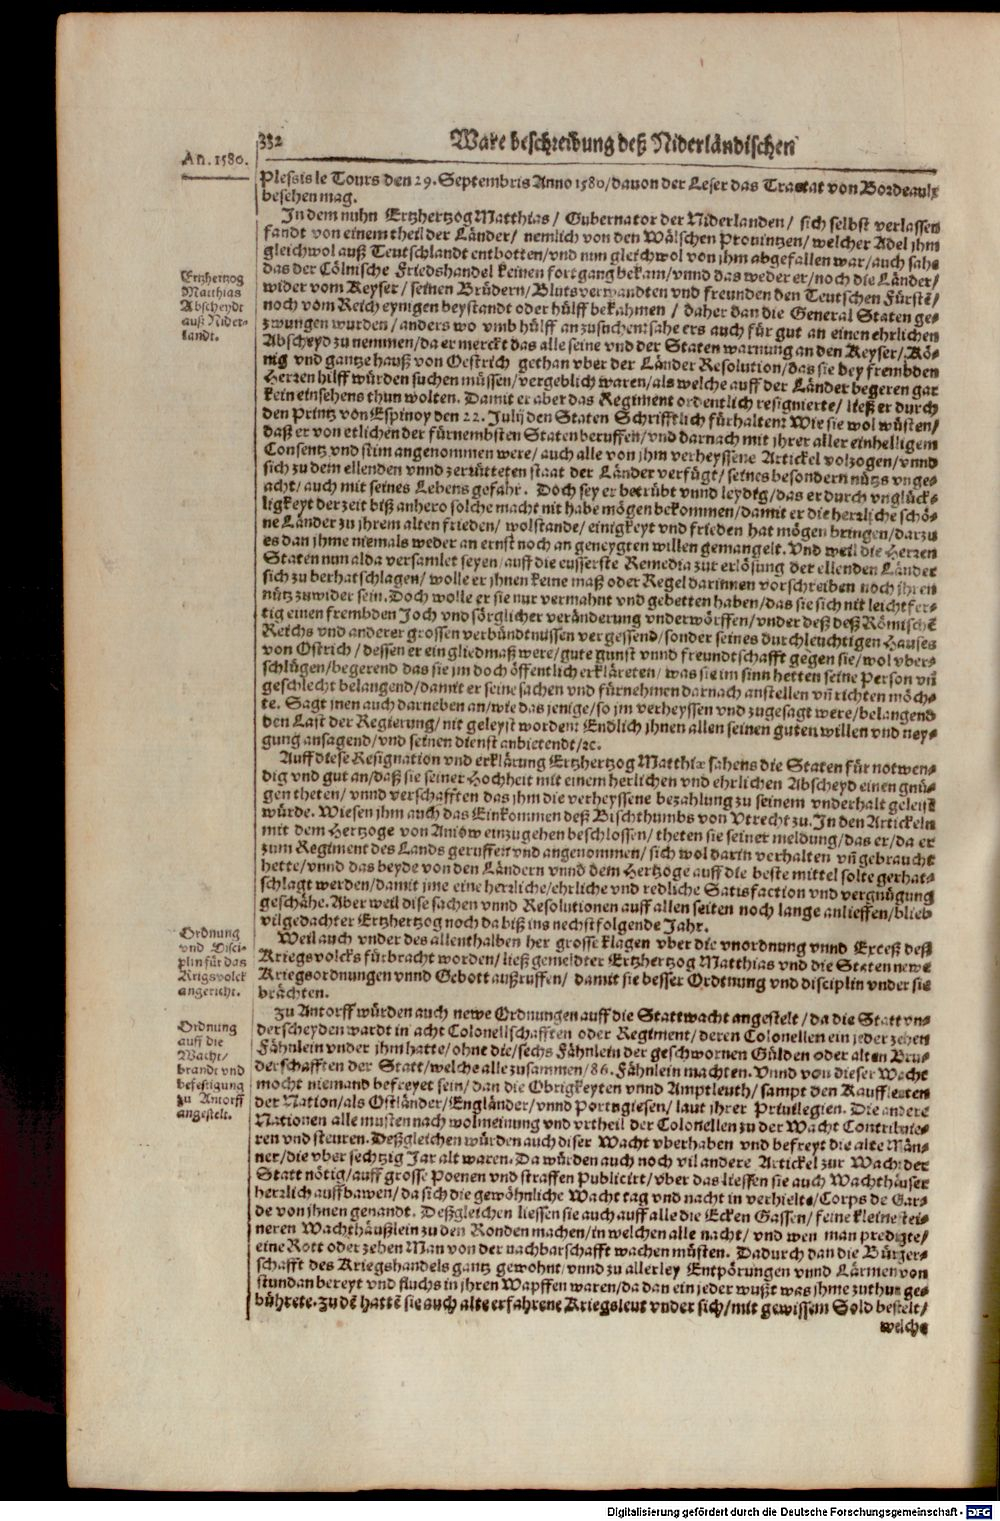 332 Ware beschreibung deß Niderländischen
An. 1580.
Plessis le Tours den 29. Septembris Anno 1580/dauon der Leser das Tractat von Bordeaulx
besehen mag.
In dem nuhn Ertzhertzog Matthias/ Gubernator der Niderlanden/ sich selbst verlassen
fandt von einem theil der Länder/ nemlich von den Wälschen Prouintzen/ welcher Adel jhn
gleichwol auß Teutschlandt entbotten/vnd nun gleichwol von jhm abgefallen war/auch sahe
das der Cölnische Friedshandel keinen fortgang bekam/vnnd das weder er/noch die Länder/
wider vom Keyser/ seinen Brüdern/Blutsverwandten vnd freunden den Teutschen Fürstē/
noch vom Reich eynigen beystandt oder hülff bekahmen / daher dan die General Staten ge-
zwungen wurden/anders wo vmb hülff an zusuchen: sahe ers auch für gut an einen ehrlichen
Abscheyd zu nemmen/da er merckt das alle seine vnd der Staten warnung an den Keyser/ Kö-
nig vnd gantze hauß von Oestrich gethan vber der Länder Resolution/das sie bey frembden
Herren hilff würden suchen müssen/vergeblich waren/als welche auff der Länder begeren gar
kein einsehens thun wolten. Damit er aber das Regiment ordentlich resignierte/ ließ er durch
den Printz von Espinoy den 22. Julij den Staten Schrifftlich fürhalten: Wie sie wol wüsten/
daß er von etlichen der fürnembsten Staten beruffen/vnd darnach mit jhrer aller einhelligem
Consentz vnd stim angenommen were/ auch alle von jhm verheyssene Artickel volzogen/vnnd
sich zu dem ellenden vnnd zerrütteten staat der Länder verfügt/ seines besondern nützs vnge-
acht/auch mit seines Lebens gefahr. Doch sey er betrübt vnnd leydig/das er durch vnglück-
ligkeyt der zeit biß anhero solche macht nit habe mögen bekommen/damit er die herrliche schö-
ne Länder zu jhrem alten frieden/ wolstande/ einigkeyt vnd frieden hat mögen bringen/darzu
es dan jhme niemals weder an ernst noch an geneygten willen gemangelt. Vnd weil die Herren
Staten nun alda versamlet seyen/auff die eusserste Remedia zur erlösung der ellenden Länder
sich zu berhatschlagen/ wolle er jhnen keine maß oder Regel darinnen vorschreiben noch jhren
nütz zuwider sein. Doch wolle er sie nur vermahnt vnd gebetten haben/das sie sich nit leichtfer-
tig einen frembden Joch vnd sörglicher veränderung vnderwörffen/vnder deß deß Römischē
Reichs vnd anderer grossen verbündtnussen vergessend/sonder seines durchleuchtigen Hauses
von Ostrich/ dessen er ein gliedmaß were/gute gunst vnnd freundtschafft gegen sie/wol vber-
schlügen/begerend das sie jm doch öffentlich erkläreten/ was sie im sinn hetten seine Person vn̄
geschlecht belangend/damit er seine sachen vnd fürnehmen darnach anstellen vn̄ richten möch-
te. Sagt jnen auch darneben an/wie das jenige/so jm verheyssen vnd zugesagt were/belangend
den Last der Regierung/nit geleyst worden: Endlich jhnen allen seinen guten willen vnd ney-
gung ansagend/vnd seinen dienst anbietendt/ꝛc.
Ertzhertzog
Matthias
Abscheydt
auß Nider-
landt.
Auff diese Resignation vnd erklärung Ertzhertzog Matthiæ sahens die Staten für notwen-
dig vnd gut an/daß sie seiner Hochheit mit einem herlichen vnd ehrlichen Abscheyd einen gnü-
gen theten/ vnnd verschafften das jhm die verheyssene bezahlung zu seinem vnderhalt geleist
würde. Wiesen jhm auch das Einkommen deß Bischthumbs von Vtrecht zu. In den Artickeln
mit dem Hertzoge von Aniow einzugehen beschlossen/ theten sie seiner meldung/das er/da er
zum Regiment des Lands geruffen vnd angenommen/ sich wol darin verhalten vn̄ gebraucht
hette/vnnd das beyde von den Ländern vnnd dem Hertzoge auff die beste mittel solte gerhat-
schlagt werden/damit jme eine herrliche/ehrliche vnd redliche Satisfaction vnd vergnügung
geschähe. Aber weil dise sachen vnnd Resolutionen auff allen seiten noch lange anlieffen/blieb
vilgedachter Ertzhertzog noch da biß ins nechstfolgende Jahr.
Weil auch vnder des allenthalben her grosse klagen vber die vnordnung vnnd Exceß deß
Kriegsvolcks fürbracht worden/ließ gemeldter Ertzhertzog Matthias vnd die Staten newe
Kriegsordnungen vnnd Gebott außruffen/ damit sie besser Ordtnung vnd disciplin vnder sie
brächten.
Ordnung
vnd Disci-
plin für das
Krigsvolck
angericht.
Zu Antorff würden auch newe Ordnungen auff die Stattwacht angestelt/da die Statt vn-
derscheyden wardt in acht Colonellschafften oder Regiment/deren Colonellen ein jeder zehen
Fähnlein vnder jhm hatte/ohne die/sechs Fähnlein der geschwornen Gülden oder alten Bru-
derschafften der Statt/welche alle zusammen/86. Fähnlein machten. Vnnd von dieser Wacht
mocht niemand befreyet sein/dan die Obrigkeyten vnnd Amptleuth/ sampt den Kauffleuten
der Nation/als Ostländer/Engländer/vnnd Portugiesen/ laut jhrer Priuilegien. Die andere
Nationen alle musten nach wolmeinung vnd vrtheil der Colonellen zu der Wacht Contribuie-
ren vnd steuren. Deßgleichen würden auch diser Wacht vberhaben vnd befreyt die alte Män-
ner/die vber sechtzig Jar alt waren. Da würden auch noch vil andere Artickel zur Wacht der
Statt nötig/auff grosse Poenen vnd straffen Publicirt/vber das liessen sie auch Wachthäuser
herzlich auffbawen/da sich die gewöhnliche Wacht tag vnd nacht in verhielte/Corps de Gar-
de von jhnen genandt. Deßgleichen liessen sie auch auff alle die Ecken Gassen/ feine kleine stei-
neren Wachthäußlein zu den Ronden machen/in welchen alle nacht/ vnd wen man predigte/
eine Rott oder zehen Man von der nachbarschafft wachen müsten. Dadurch dan die Bürger-
schafft des Kriegshandels gantz gewohnt/vnnd zu allerley Entpörungen vnnd Lärmen von
stundan bereyt vnd fluchs in jhren Wapffen waren/da dan ein jeder wußt was jhme zuthun ge-
bührete. Zu dē hattē sie auch alte erfahrene Kriegsleut vnder sich/mit gewissem Sold bestelt/
welche
Ordnung
auff die
Wacht/
brandt vnd
befestigung
zu Antorff
angestelt.
Digitalisierung gefördert durch die Deutsche Forschungsgemeinschaft - DFG